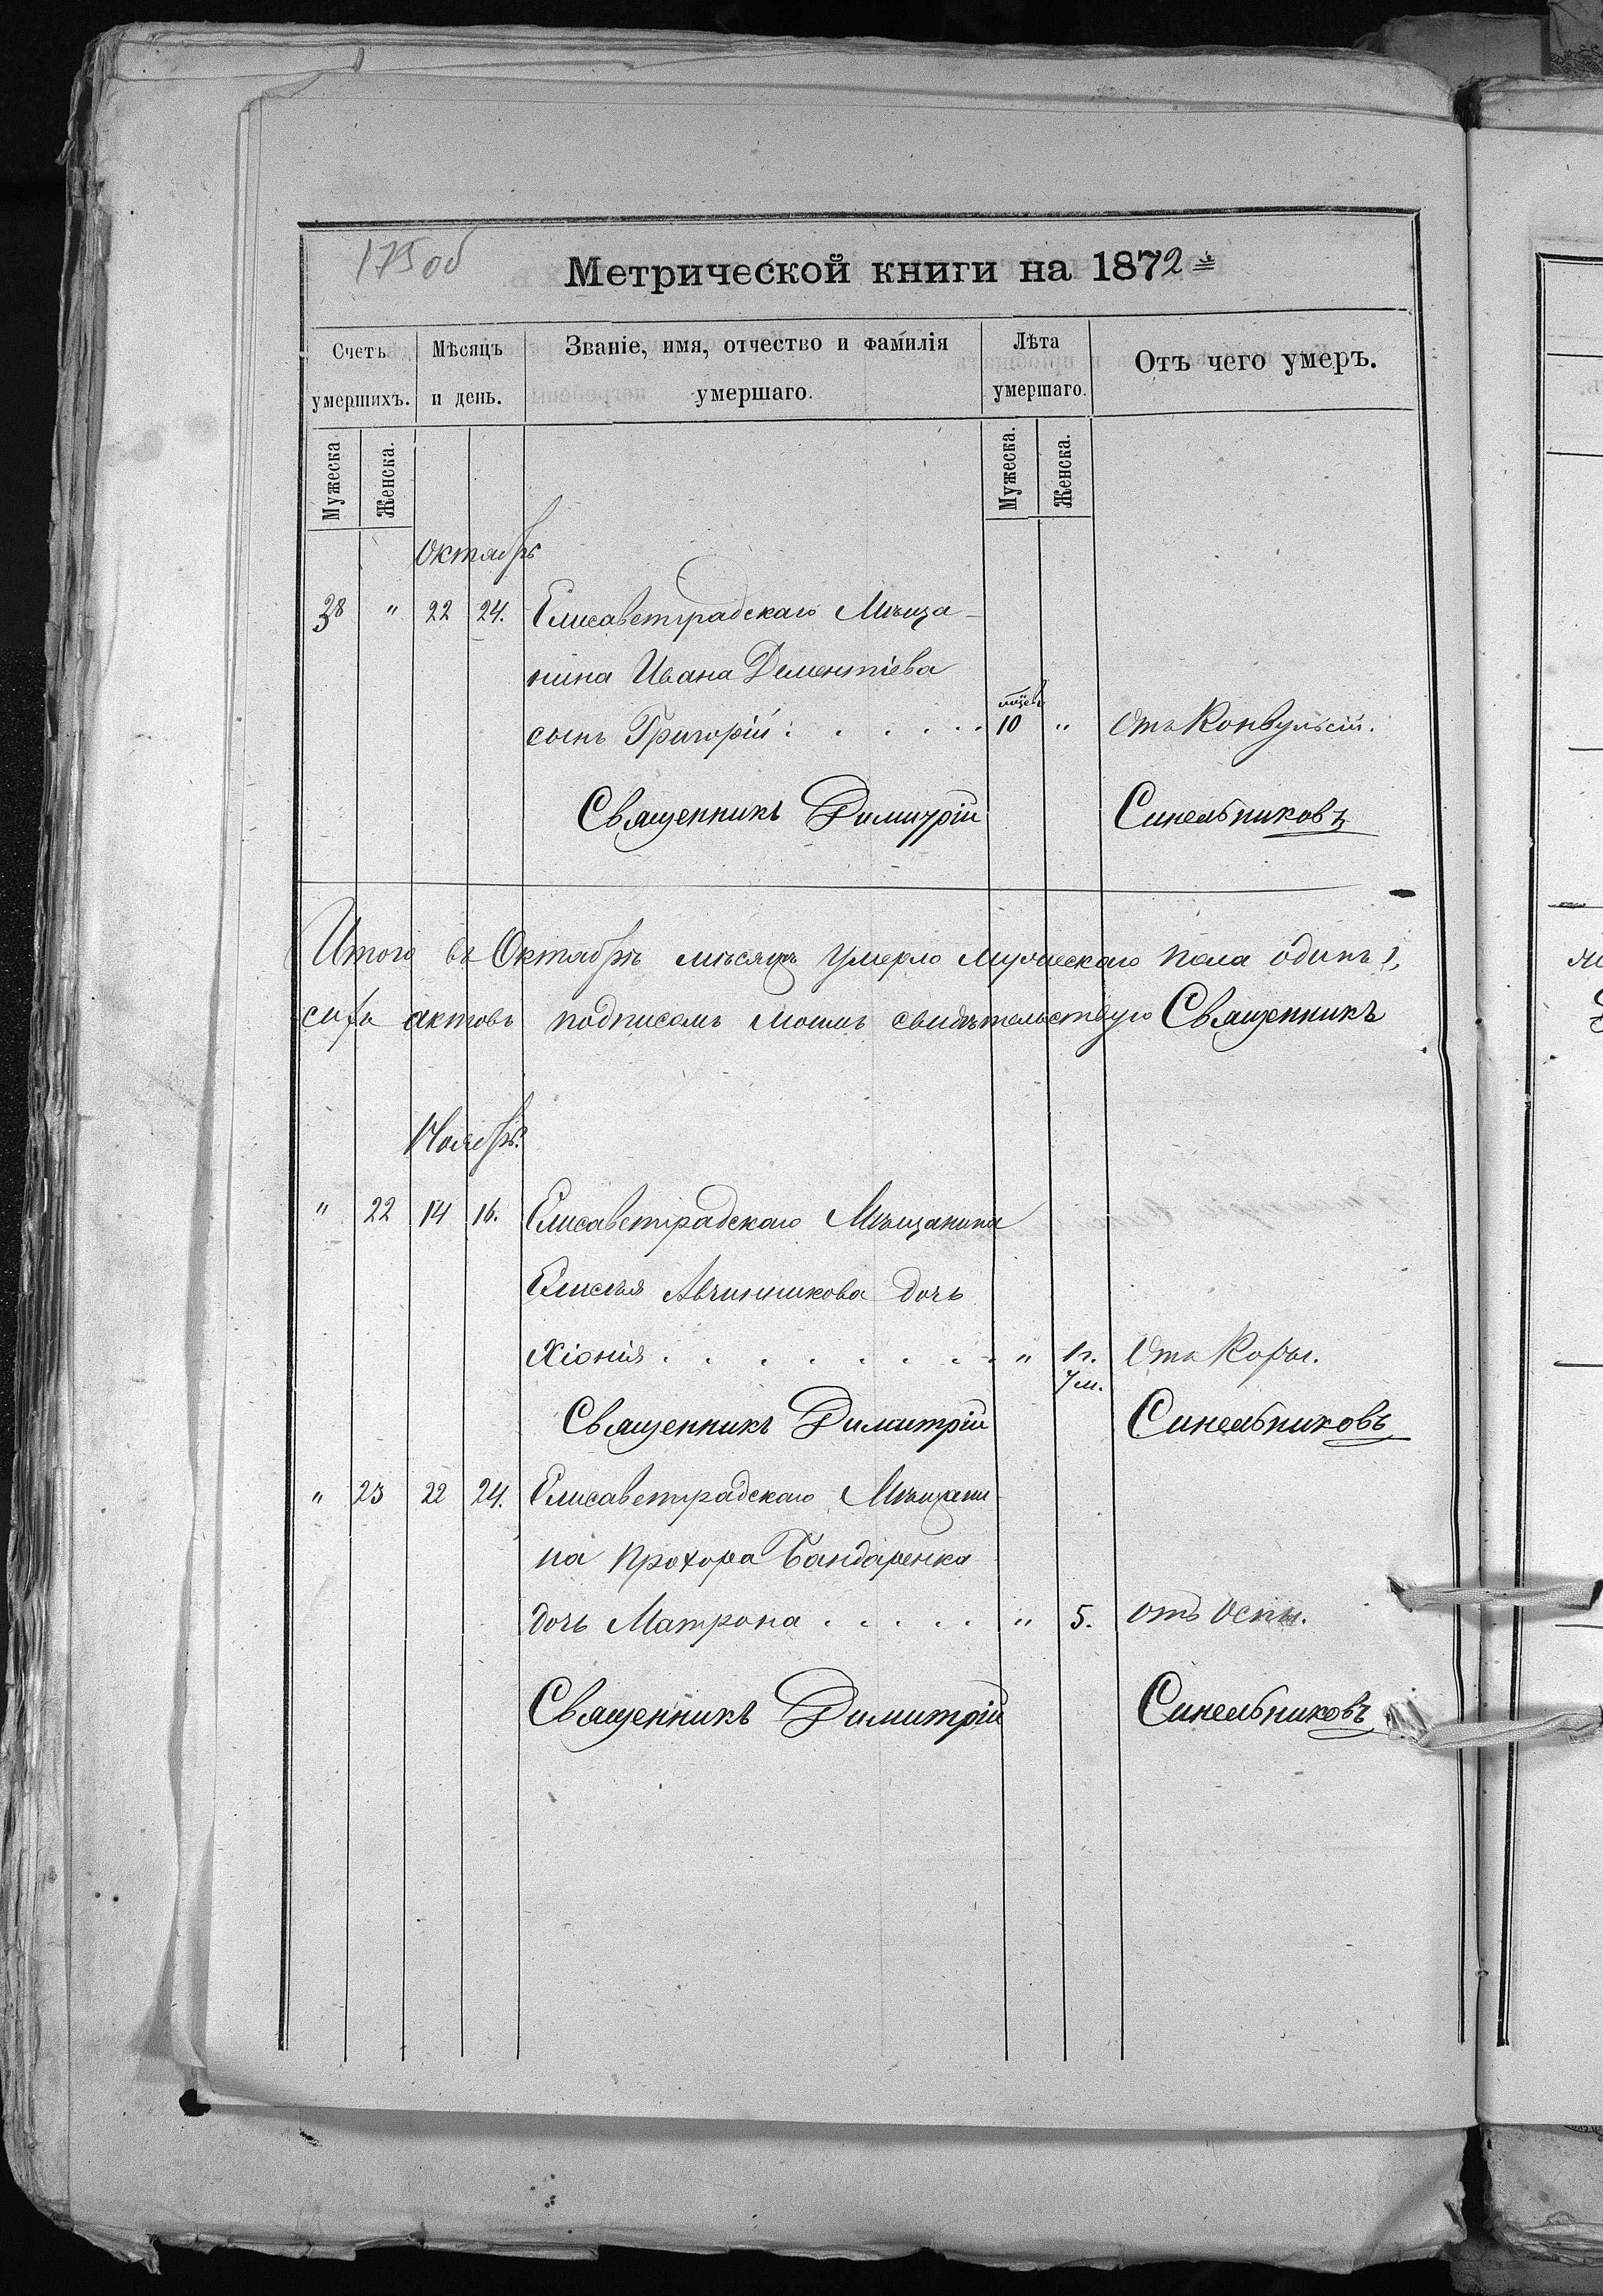 175 об
Метрической книги на 1872
Счетъ умершихъ. Мѣсяцъ и день. Званіе, имя, отчество и фамилія умершаго. Лѣта умершаго. Отъ чего умеръ.
Мужеска Женска. Мужеска. Женска.
Октябрь
38 " 22 24. Елисаветградскаго Мѣща-
нина Ивана Дементіева
сынъ Григорій 10 " Отъ Конвульсій.
Священникъ Димитрій Синельниковъ
Итого въ Октябрѣ мѣсяцѣ умерло мужескаго пола одинъ 1,
актовъ подписомъ моимъ свидѣтельствую Священникъ
Ноябрь.
" 22 14 16. Елисаветградскаго Мѣщанина
Елисѣя Авчинникова дочь
Хіонія " 1 г. Отъ Коры.
7 м.
Священникъ Димитрій Синельниковъ
" 23 22 24. Елисаветградскаго Мѣщани
на Прохора Бандаренка
дочь Матрона " 5. отъ Оспы.
Священникъ Димитрій Синельниковъ